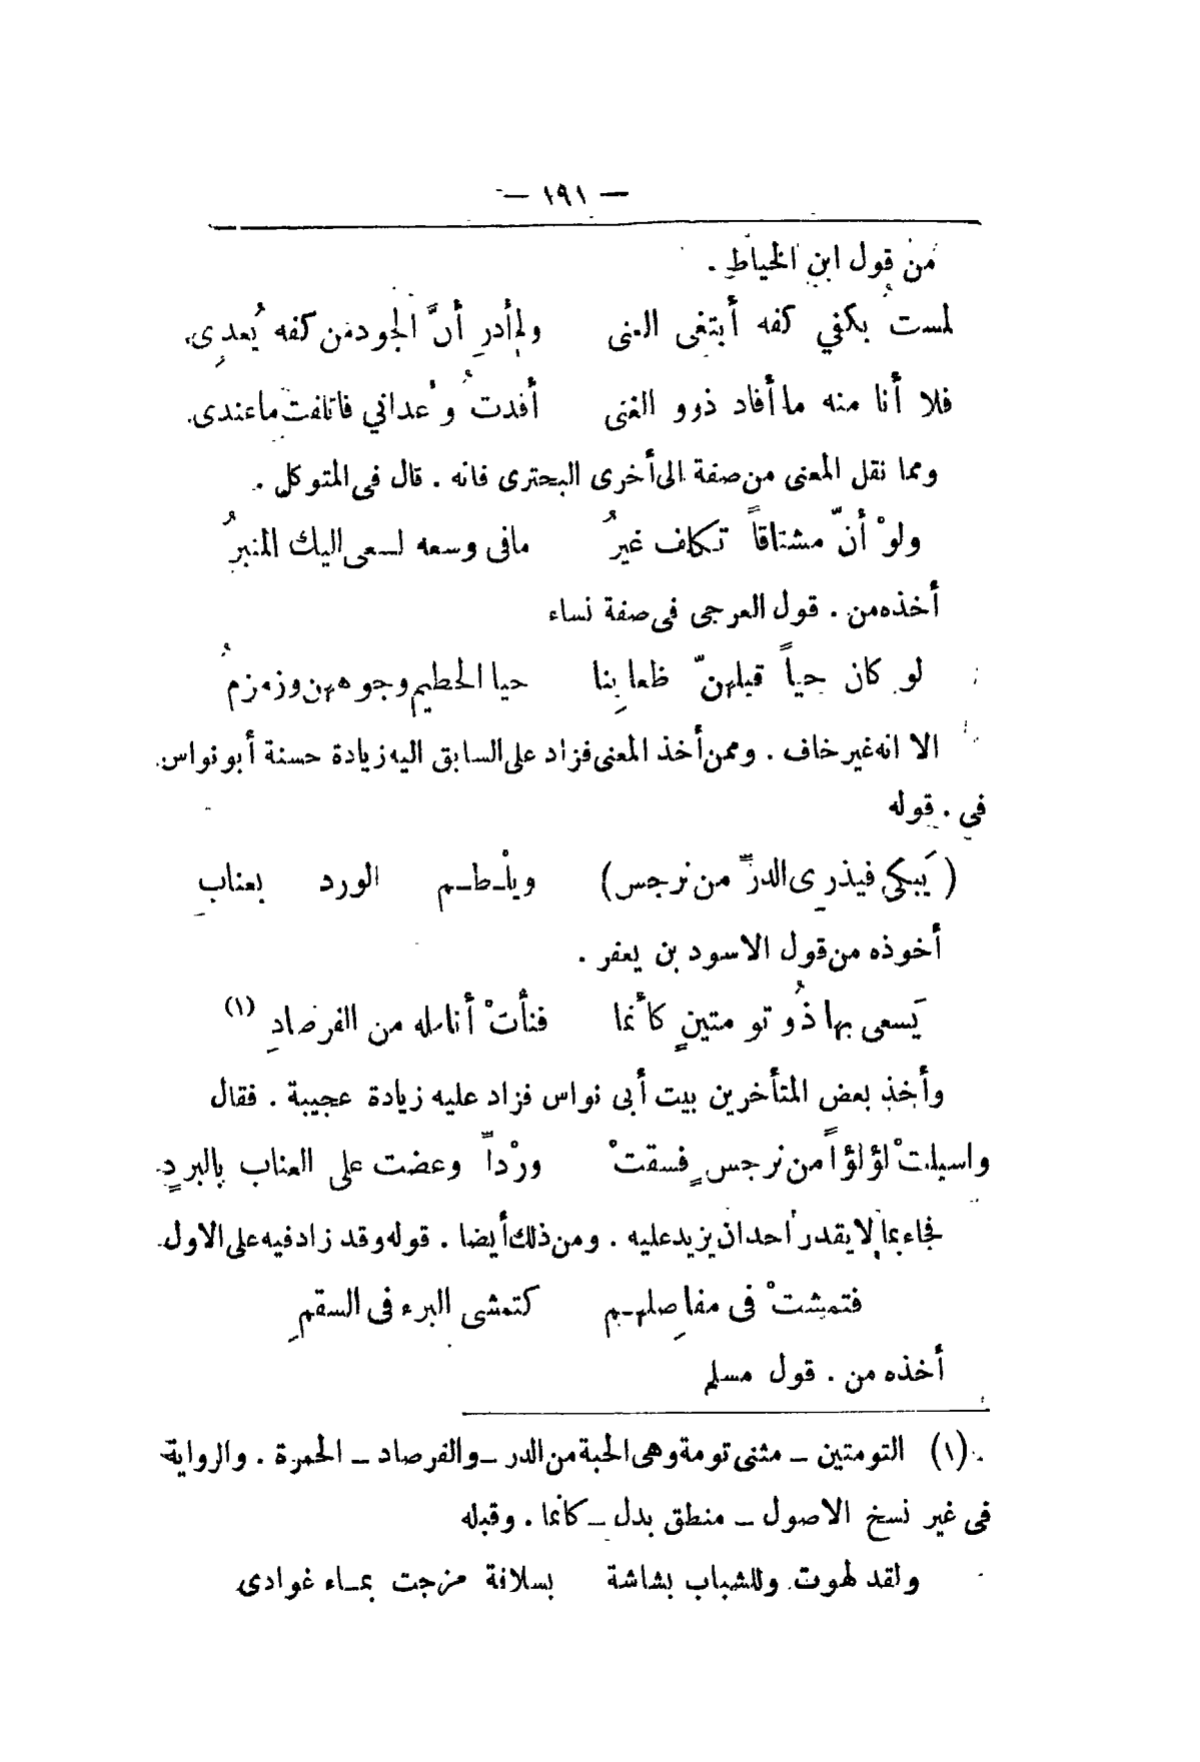 — ١٩١ —
من قول ابن الخياط .
لمستُ بكفي كفه أبتغى الغنى ولم أدرِ أنَّ الجود من كفه يُعدِى
فلا أنا منه ما أفاد ذوو الغنى أفدتُ وأعدانى فاتلفت ما عندى
ومما نقل المعنى من صفة الى أخرى البحترى فانه . قال فى المتوكل .
ولوْ أنّ مشتاقاً تكلف غيرُ مافى وسعه لسعى اليك المنبرُ
أخذه من . قول العرجى فى صفة نساء
لو كان حياً قبلهنّ ظعاينا حيا الحطيم وجوههن وزمزمُ
الا انه غير خاف . وممن أخذ المعنى فزاد على السابق اليه زيادة حسنة أبو نواس
فى . قوله
(يَبكى فيذرى الدرّ من نرجس) ويلْـطـم الورد بعنابِ
أخوذه من قول الاسود بن يعفر .
يَسعى بها ذُو تو متينٍ كأنما فنأتْ أنامله من الفرصادِ (١)
وأخذ بعض المتأخرين بيت أبى نواس فزاد عليه زيادة عجيبة . فقال
واسبلتْ لؤلؤاً من نرجسٍ فسقتْ ورْداً وعضت على العناب بالبردِ
فجاء بما لا يقدر أحد ان يزيد عليه . ومن ذلك أيضا . قوله وقد زاد فيه على الاول
فتمشتْ فى مفاصلهـم كتمشى البرء فى السقمِ
أخذه من . قول مسلم
(١) التومتين ـ مثنى تومة وهى الحبة من الدر ـ والفرصاد ـ الحمرة . والرواية
فى غير نسخ الاصول ـ منطق بدل ـ كأنما . وقبله
ولقد لهوت وللشباب بشاشة بسلافة مزجت بمـاء غوادى